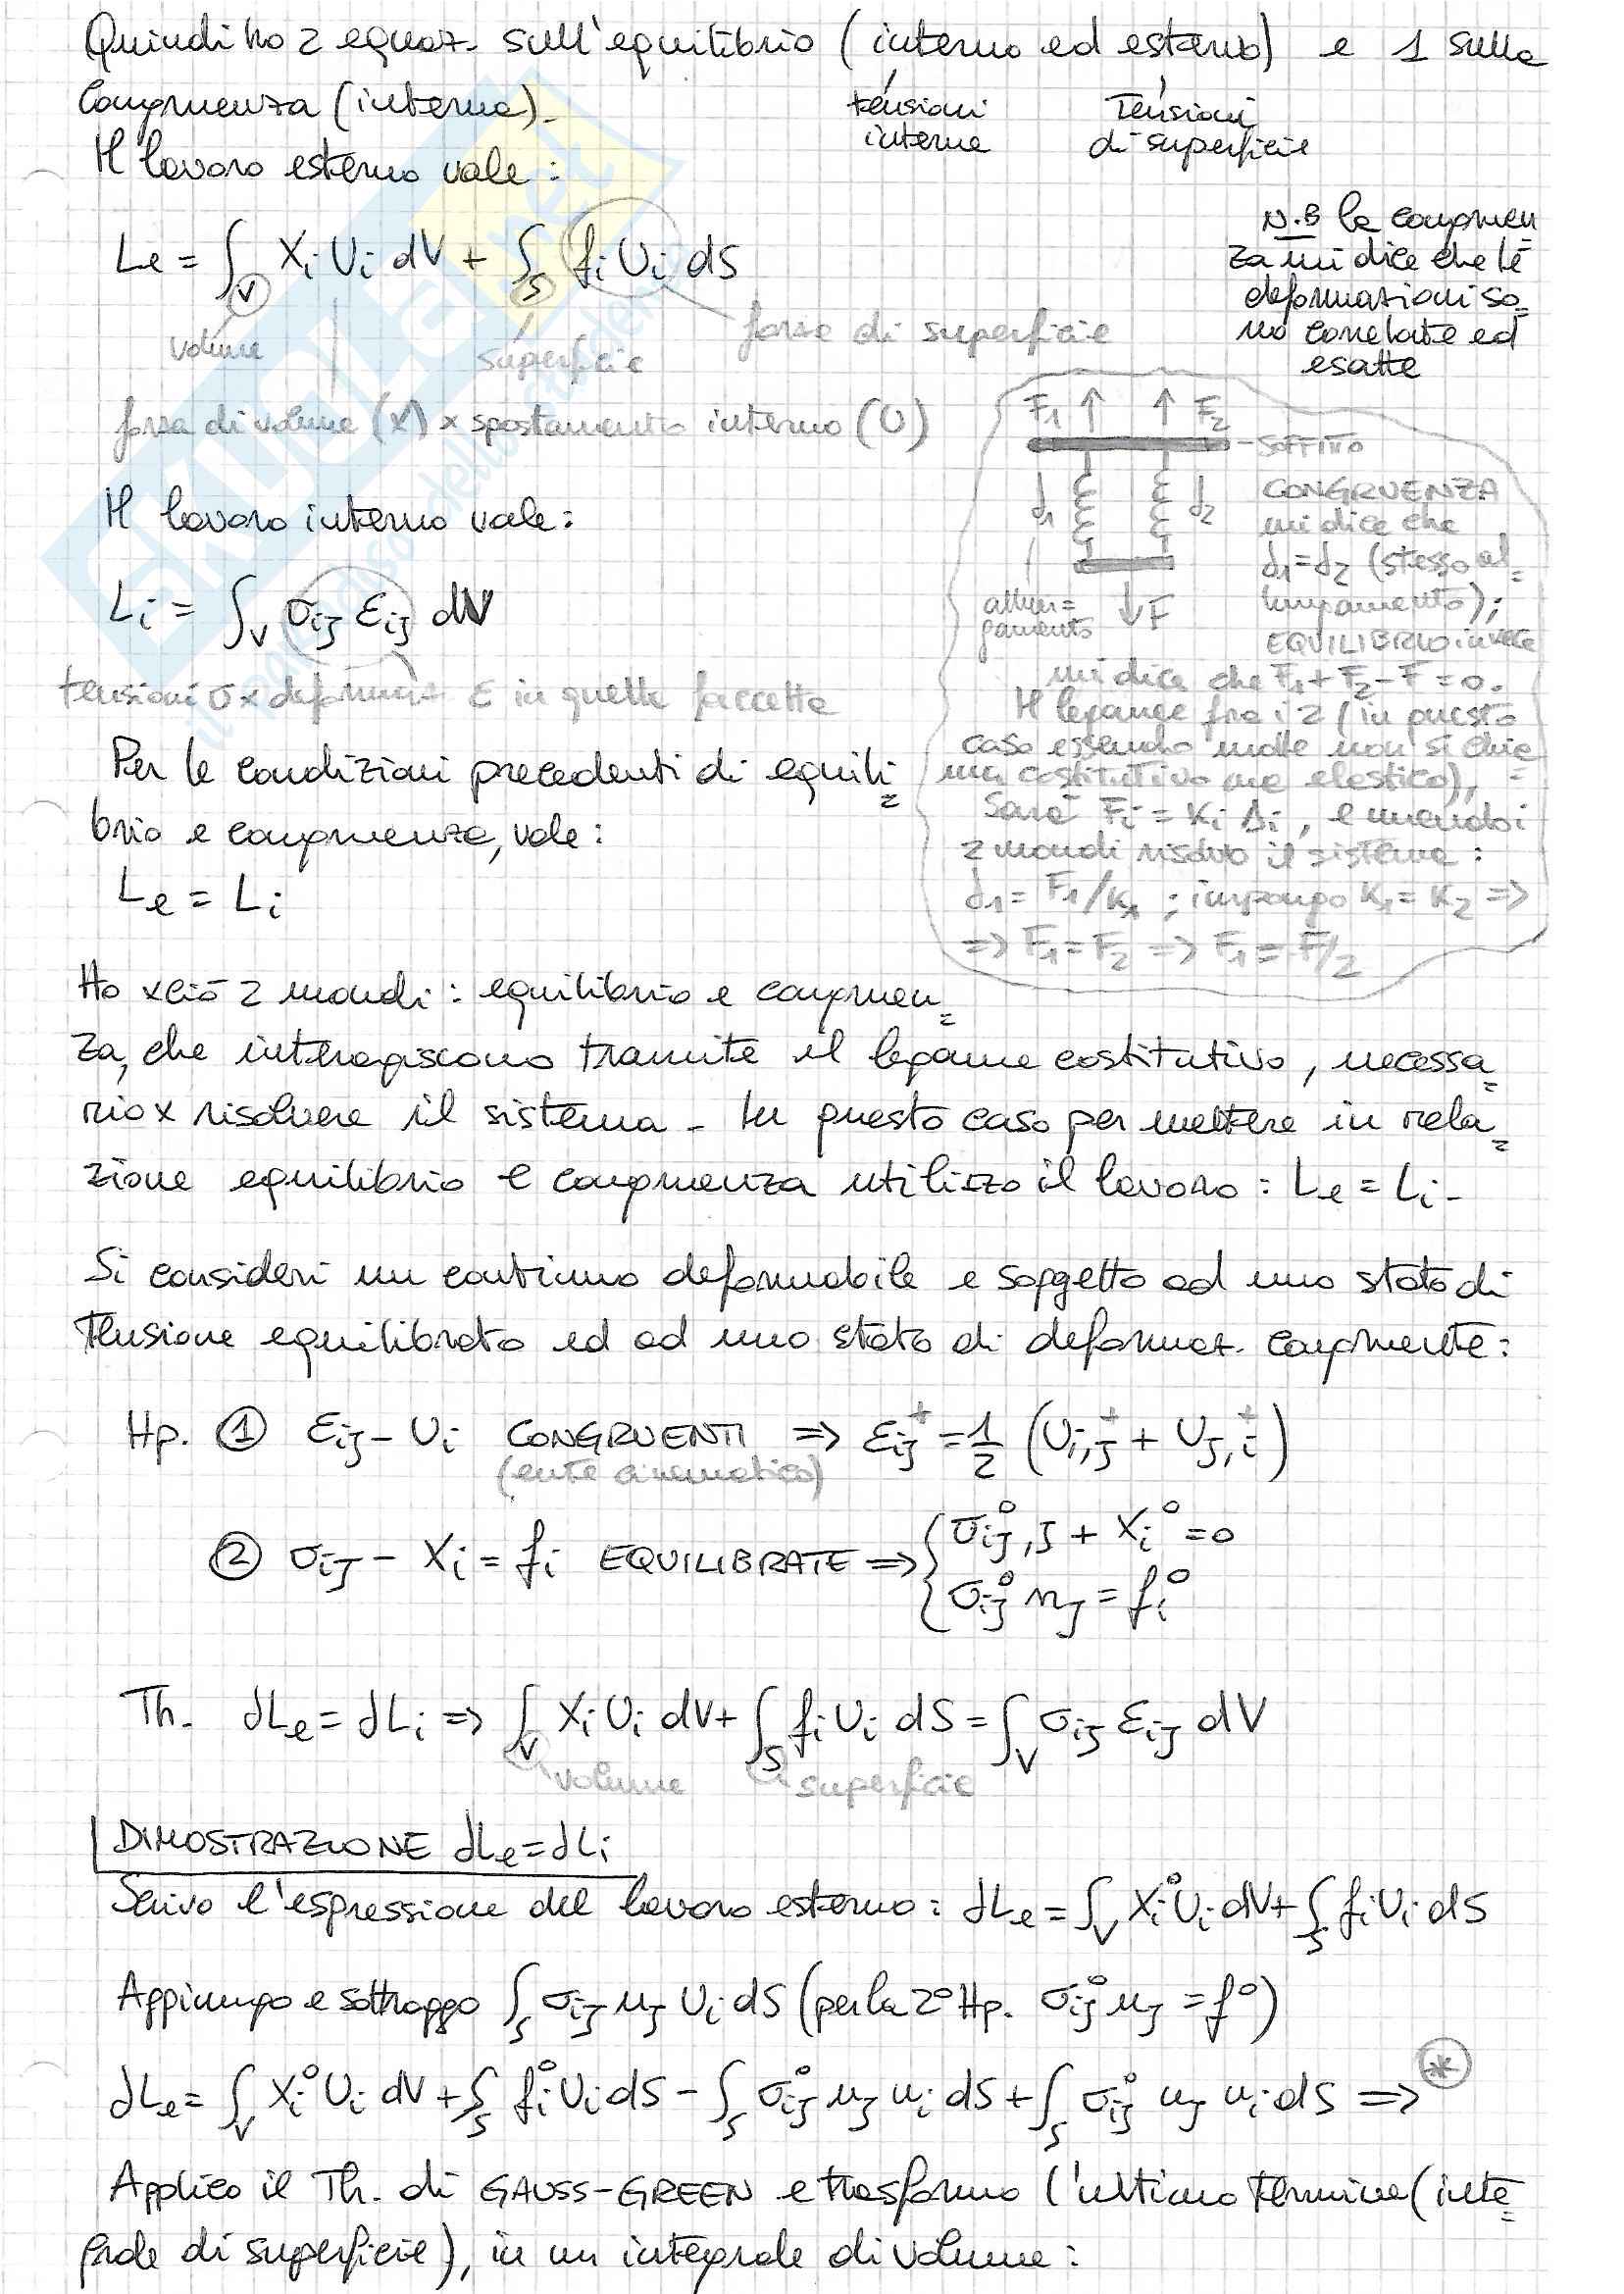 Quindi ho 2 equaz. sull'equilibrio (interno ed esterno) e 1 sulla
congruenza (interna).
tensioni interne
Tensioni di superficie
Il lavoro esterno vale:
N.B la congruen=
za mi dice che le
deformazioni so=
no correlate ed
esatte
Le = ∫V Xi Ui dV + ∫S fi Ui dS
volume
superficie
forze di superficie
forza di volume (X) x spostamento interno (U)
F1 ↑ ↑ F2
SOFFITTO
d1 d2
allun=
gamento
↓F
CONGRUENZA
mi dice che
d1=d2 (stesso al=
lungamento);
EQUILIBRIO invece
mi dice che F1+F2-F=0.
Il legame fra i 2 (in questo
caso essendo molle non si chia=
ma costitutivo ma elastico),
sarà Fi = Ki Δi, e unendo i
2 mondi risolvo il sistema:
d1 = F1/K1; impongo K1 = K2 =>
=> F1 = F2 => F1 = F/2
Il lavoro interno vale:
Li = ∫V σij εij dV
tensioni σ x deformaz ε in quella faccetta
Per le condizioni precedenti di equili=
brio e congruenza, vale:
Le = Li
Ho xciò 2 mondi: equilibrio e congruen=
za, che interagiscono tramite il legame costitutivo, necessa=
rio x risolvere il sistema - In questo caso per mettere in rela=
zione equilibrio e congruenza utilizzo il lavoro: Le = Li -
Si consideri un continuo deformabile e soggetto ad uno stato di
tensione equilibrato ed ad uno stato di deformaz. congruente:
Hp. ① εij - Ui CONGRUENTI => εij⁺ = 1/2 (Ui,j⁺ + Uj,i⁺)
(ente cinematico)
② σij - Xi = fi EQUILIBRATE => { σij°,j + Xi° = 0
σij° nj = fi°
Th. dLe = dLi => ∫V Xi Ui dV + ∫S fi Ui dS = ∫V σij εij dV
volume superficie
DIMOSTRAZIONE dLe = dLi
Scrivo l'espressione del lavoro esterno: dLe = ∫V Xi° Ui dV + ∫S fi Ui dS
Aggiungo e sottraggo ∫S σij nj Ui dS (per la 2° Hp. σij° nj = f°)
dLe = ∫V Xi° Ui dV + ∫S fi° Ui dS - ∫S σij° nj ui dS + ∫S σij° nj ui dS => ⊛
Applico il Th. di GAUSS-GREEN e trasformo l'ultimo termine (inte=
grale di superficie), in un integrale di volume: